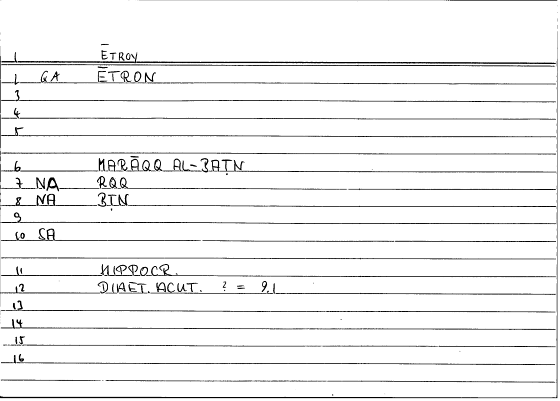 1 ĒTRON
1 GA ĒTRON
3
4
5
6 MARĀQQ AL-BAṬN
7 NA RQQ
8 NA BṬN
9
10 SA
11 HIPPOCR.
12 DIAET. ACUT. ? = 9.1
13
14
15
16